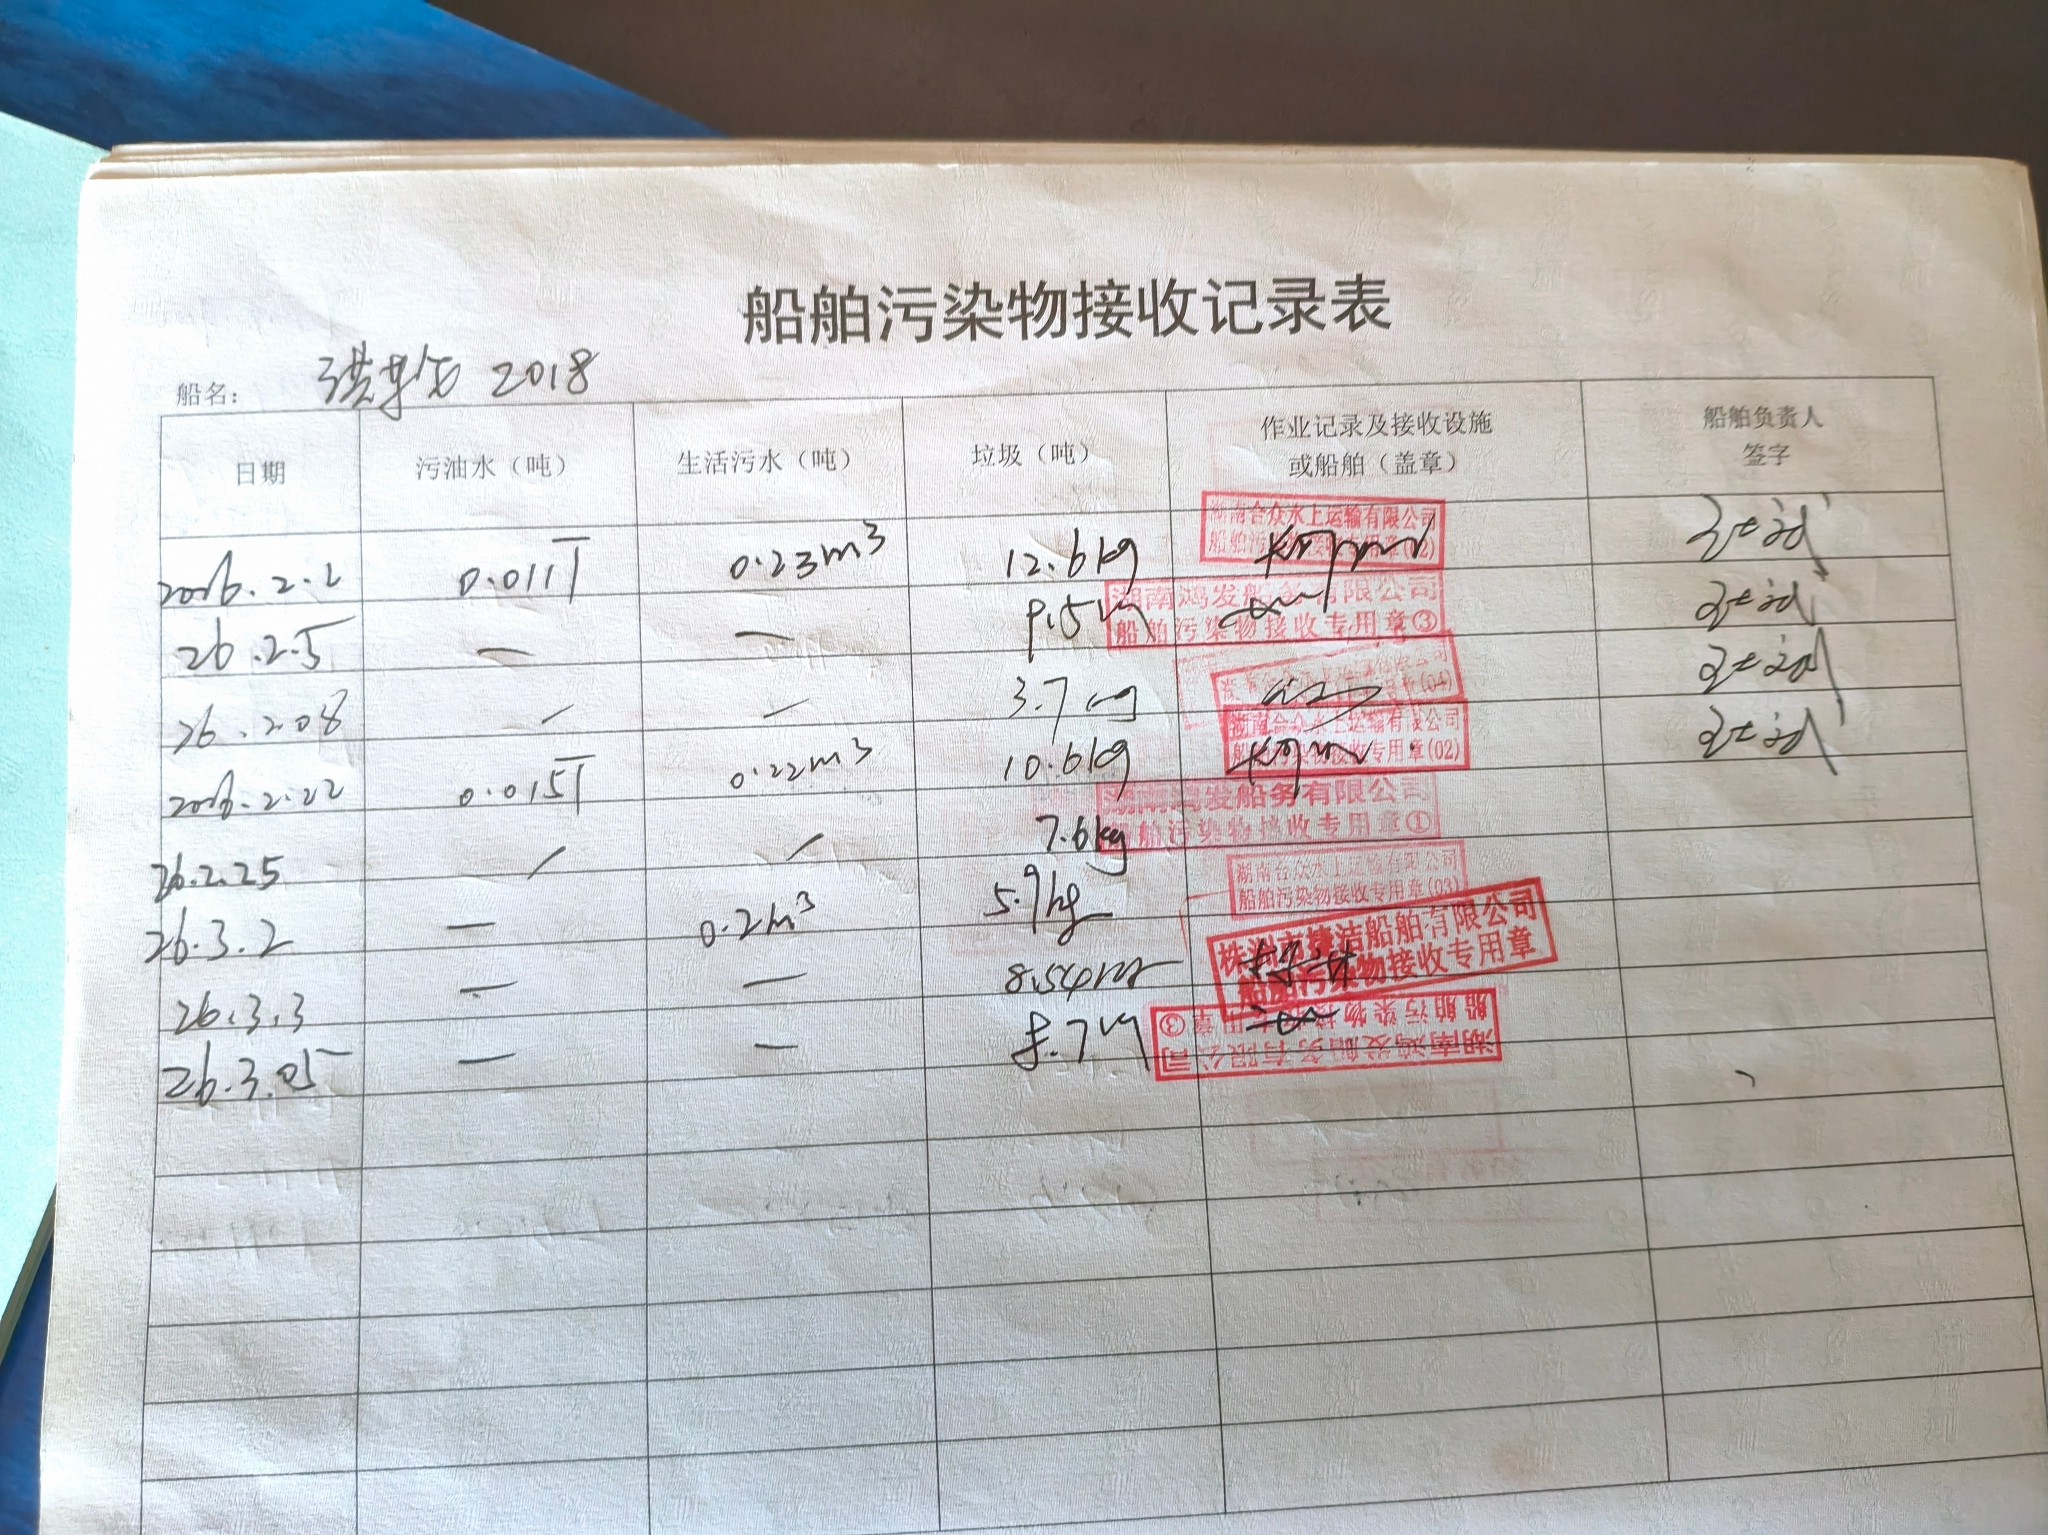 船舶污染物接收记录表
船名: 2018
日期 污油水（吨） 生活污水（吨） 垃圾（吨） 作业记录及接收设施或船舶（盖章） 船舶负责人签字
2026.2.2 0.011T 0.23m³ 12.6kg 湖南合众水上运输有限公司
26.2.5 — — 9.5kg 湖南鸿发船务有限公司 船舶污染物接收专用章③
26.2.08 / / 3.7kg (04)
2026.2.22 0.015T 0.22m³ 10.6kg 湖南合众水上运输有限公司 船舶污染物接收专用章(02)
26.2.25 / / 7.6kg 湖南鸿发船务有限公司 船舶污染物接收专用章①
26.3.2 — 0.2m³ 5.9kg 湖南合众水上运输有限公司 船舶污染物接收专用章(03)
26.3.3 — — 8.54kg 株洲市捷洁船舶有限公司 船舶污染物接收专用章
26.3.05 — — 8.7kg 湖南鸿发船务有限公司 船舶污染物接收专用章③